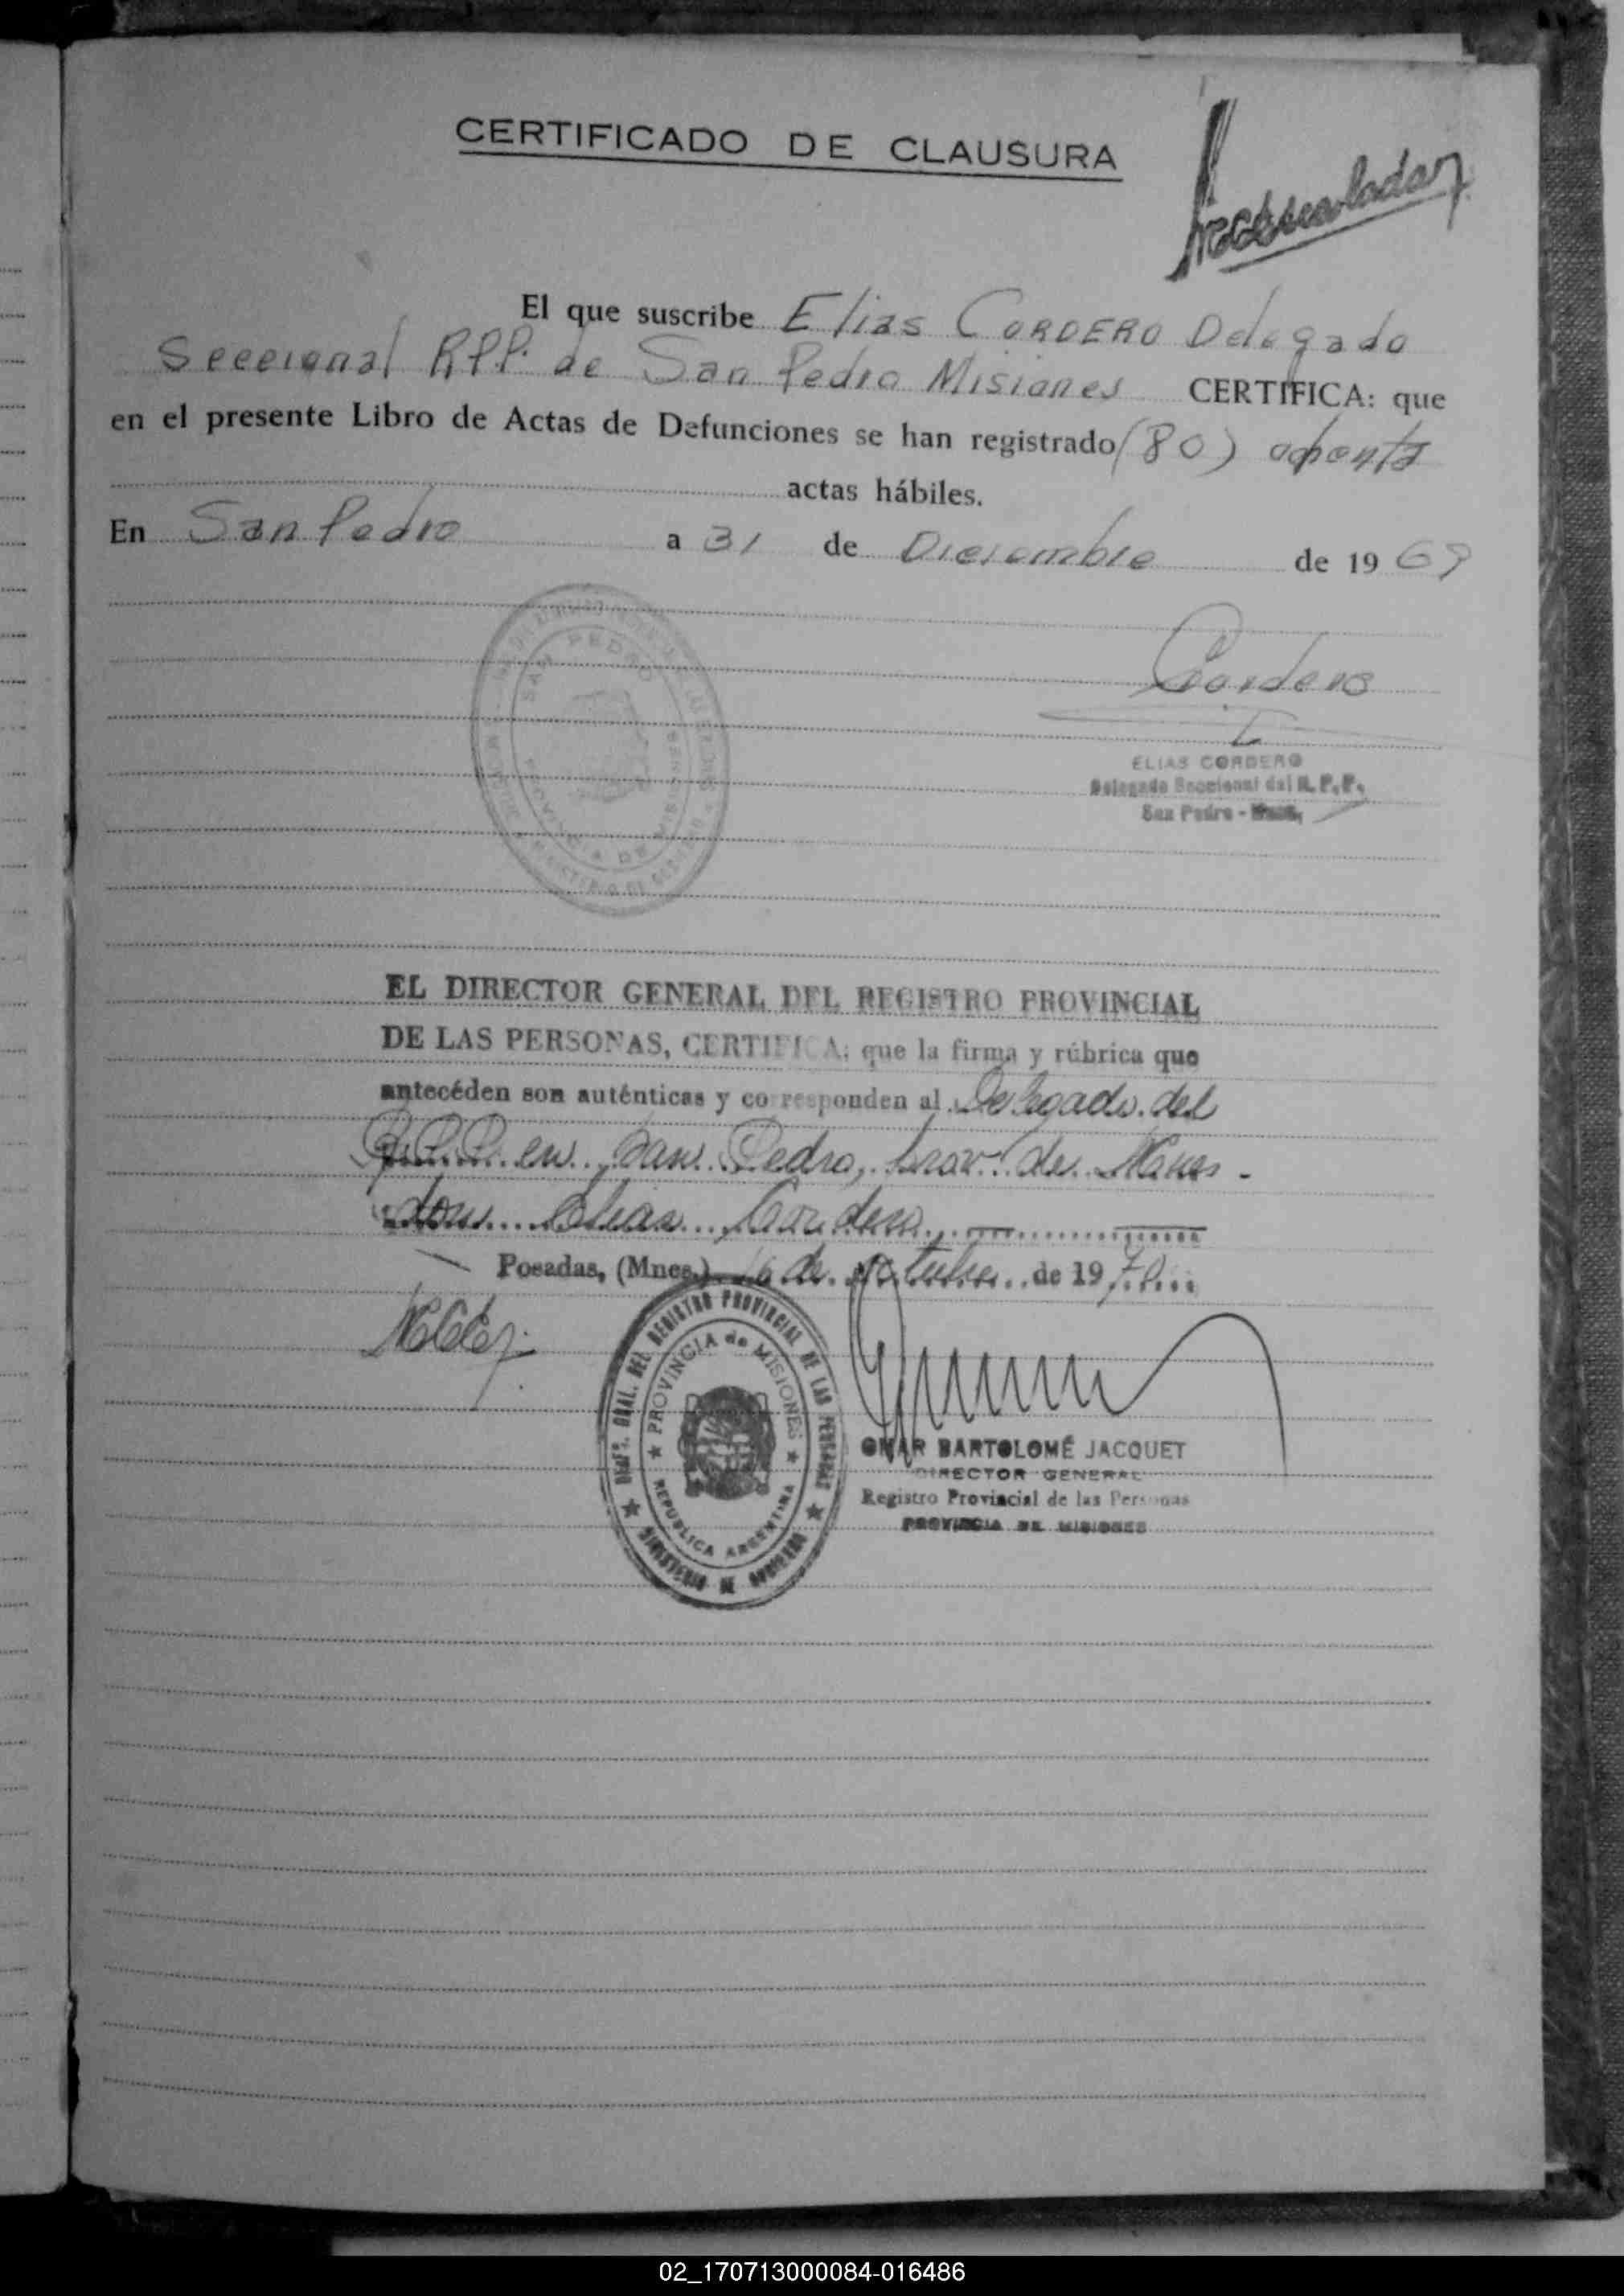 CERTIFICADO DE CLAUSURA
El que suscribe Elias CORDERO Delegado
Seccional RPP. de San Pedro Misiones CERTIFICA: que
en el presente Libro de Actas de Defunciones se han registrado (80) ochenta
actas hábiles.
En San Pedro a 31 de Diciembre de 1969
SAN PEDRO
Cordero
ELIAS CORDERO
Delegado Seccional del R. P. P.
San Pedro -
EL DIRECTOR GENERAL DEL REGISTRO PROVINCIAL
DE LAS PERSONAS, CERTIFICA: que la firma y rúbrica que
antecéden son auténticas y corresponden al Delegado del
R.P.P. en San Pedro, Prov. de Mnes -
don Elias Cordero
Posadas, (Mnes.) 16 de octubre de 1970
DIREC. GRAL. DEL REGISTRO PROVINCIAL DE LAS PERSONAS
PROVINCIA de MISIONES
REPUBLICA ARGENTINA
MINISTERIO DE GOBIERNO
OMAR BARTOLOMÉ JACQUET
DIRECTOR GENERAL
Registro Provincial de las Personas
PROVINCIA DE MISIONES
02_170713000084-016486